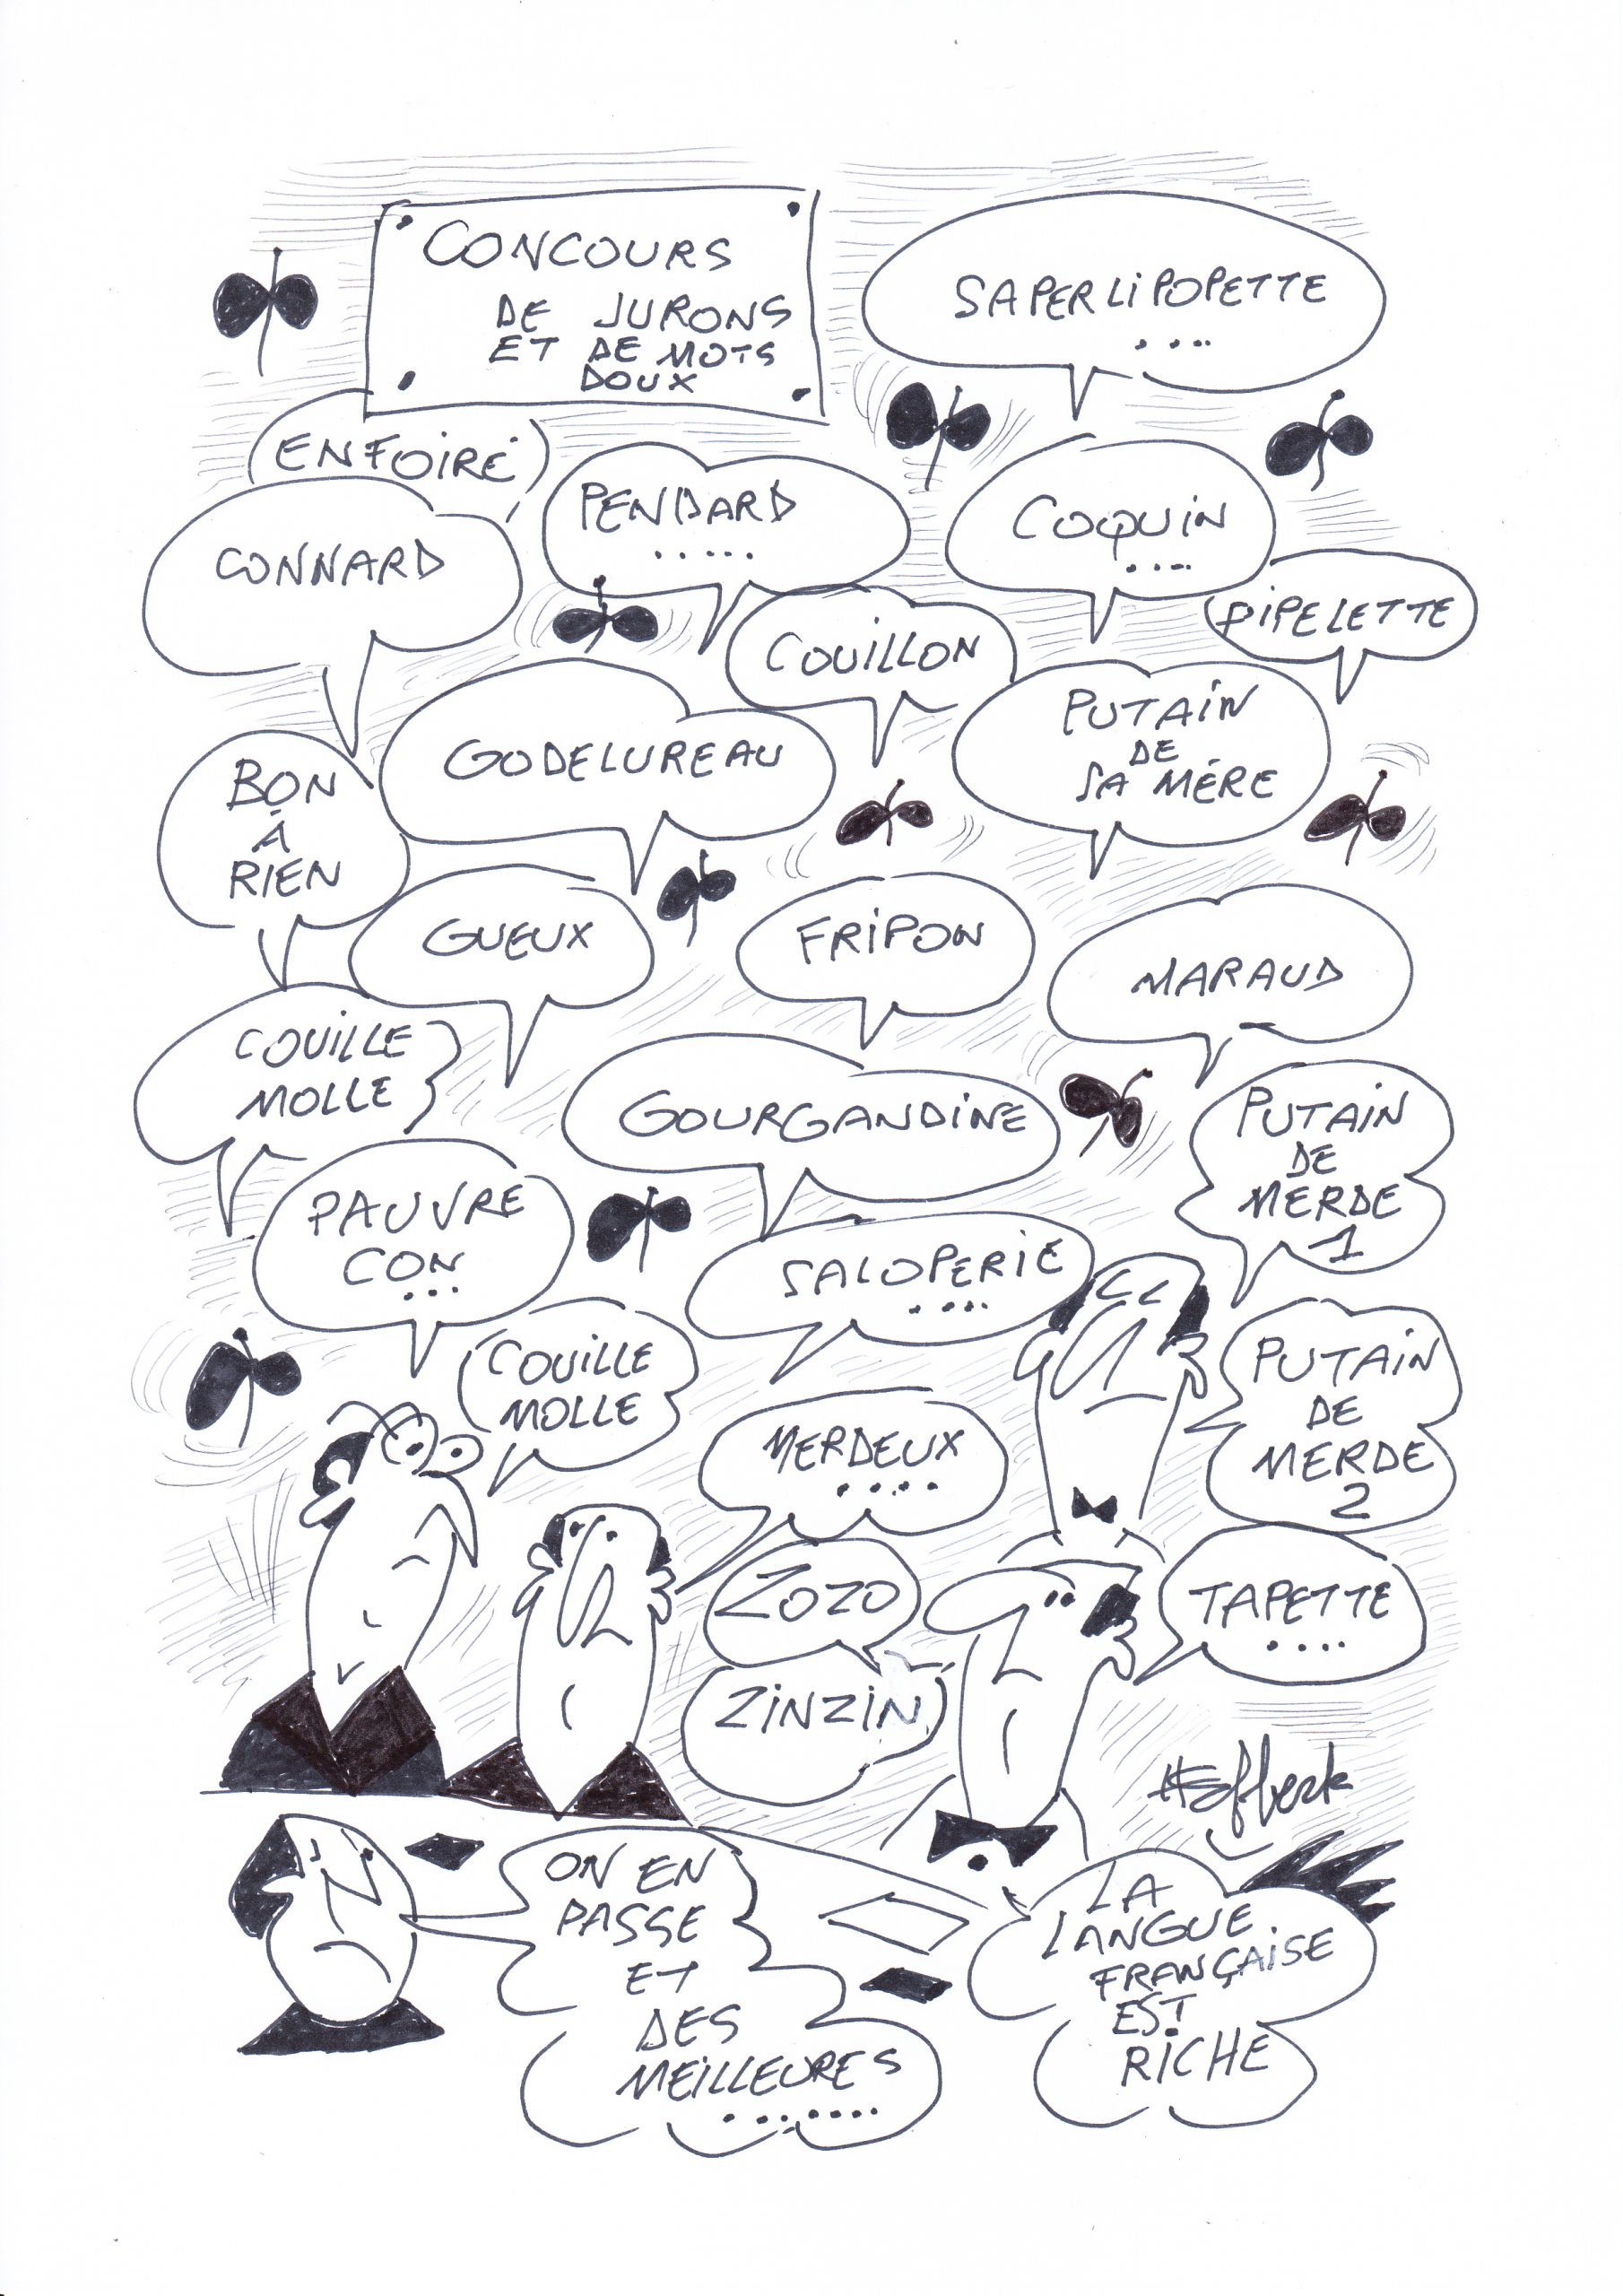 CONCOURS
DE JURONS
ET DE MOTS
DOUX
SAPERLIPOPETTE
....
ENFOIRÉ
PENDARD
.....
COQUIN
....
CONNARD
PIPELETTE
COUILLON
PUTAIN
DE
SA MÈRE
GODELUREAU
BON
À
RIEN
GUEUX
FRIPON
MARAUD
COUILLE
MOLLE
GOURGANDINE
PUTAIN
DE
MERDE
1
PAUVRE
CON
...
SALOPERIE
....
COUILLE
MOLLE
PUTAIN
DE
MERDE
2
MERDEUX
....
ZOZO
TAPETTE
....
ZINZIN
ON EN
PASSE
ET
DES
MEILLEURES
.......
LA
LANGUE
FRANÇAISE
EST
RICHE